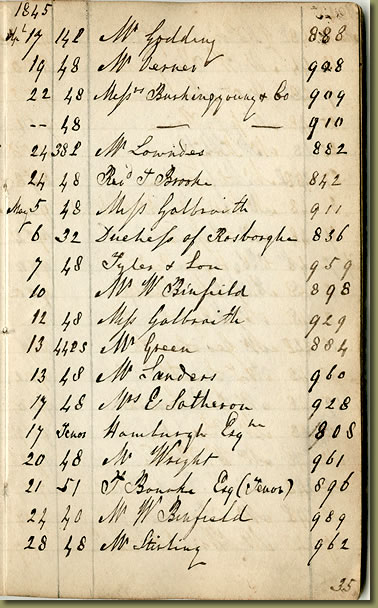 1845
17 142 Mr Godding 888
19 48 Mr Verner 908
22 48 Messrs & Co 909
-- 48 — — 910
24 382 Mr Lowndes 882
24 48 Revd J Brooke 842
May 5 48 Miss Galbraith 911
6 32 Duchess of Roxborghe 836
7 48 Tyler & Son 959
10 Mr W Binfield 898
12 48 Miss Galbraith 929
13 Mr Green 884
13 48 Mr Sanders 960
17 48 Mrs E Sotheron 928
17 Tenor Hamburgh Esqre 808
20 48 Mr Wright 961
21 51 J Bourke Esq (Tenor) 896
24 40 Mr W Binfield 989
28 48 Mr Stirling 962
35